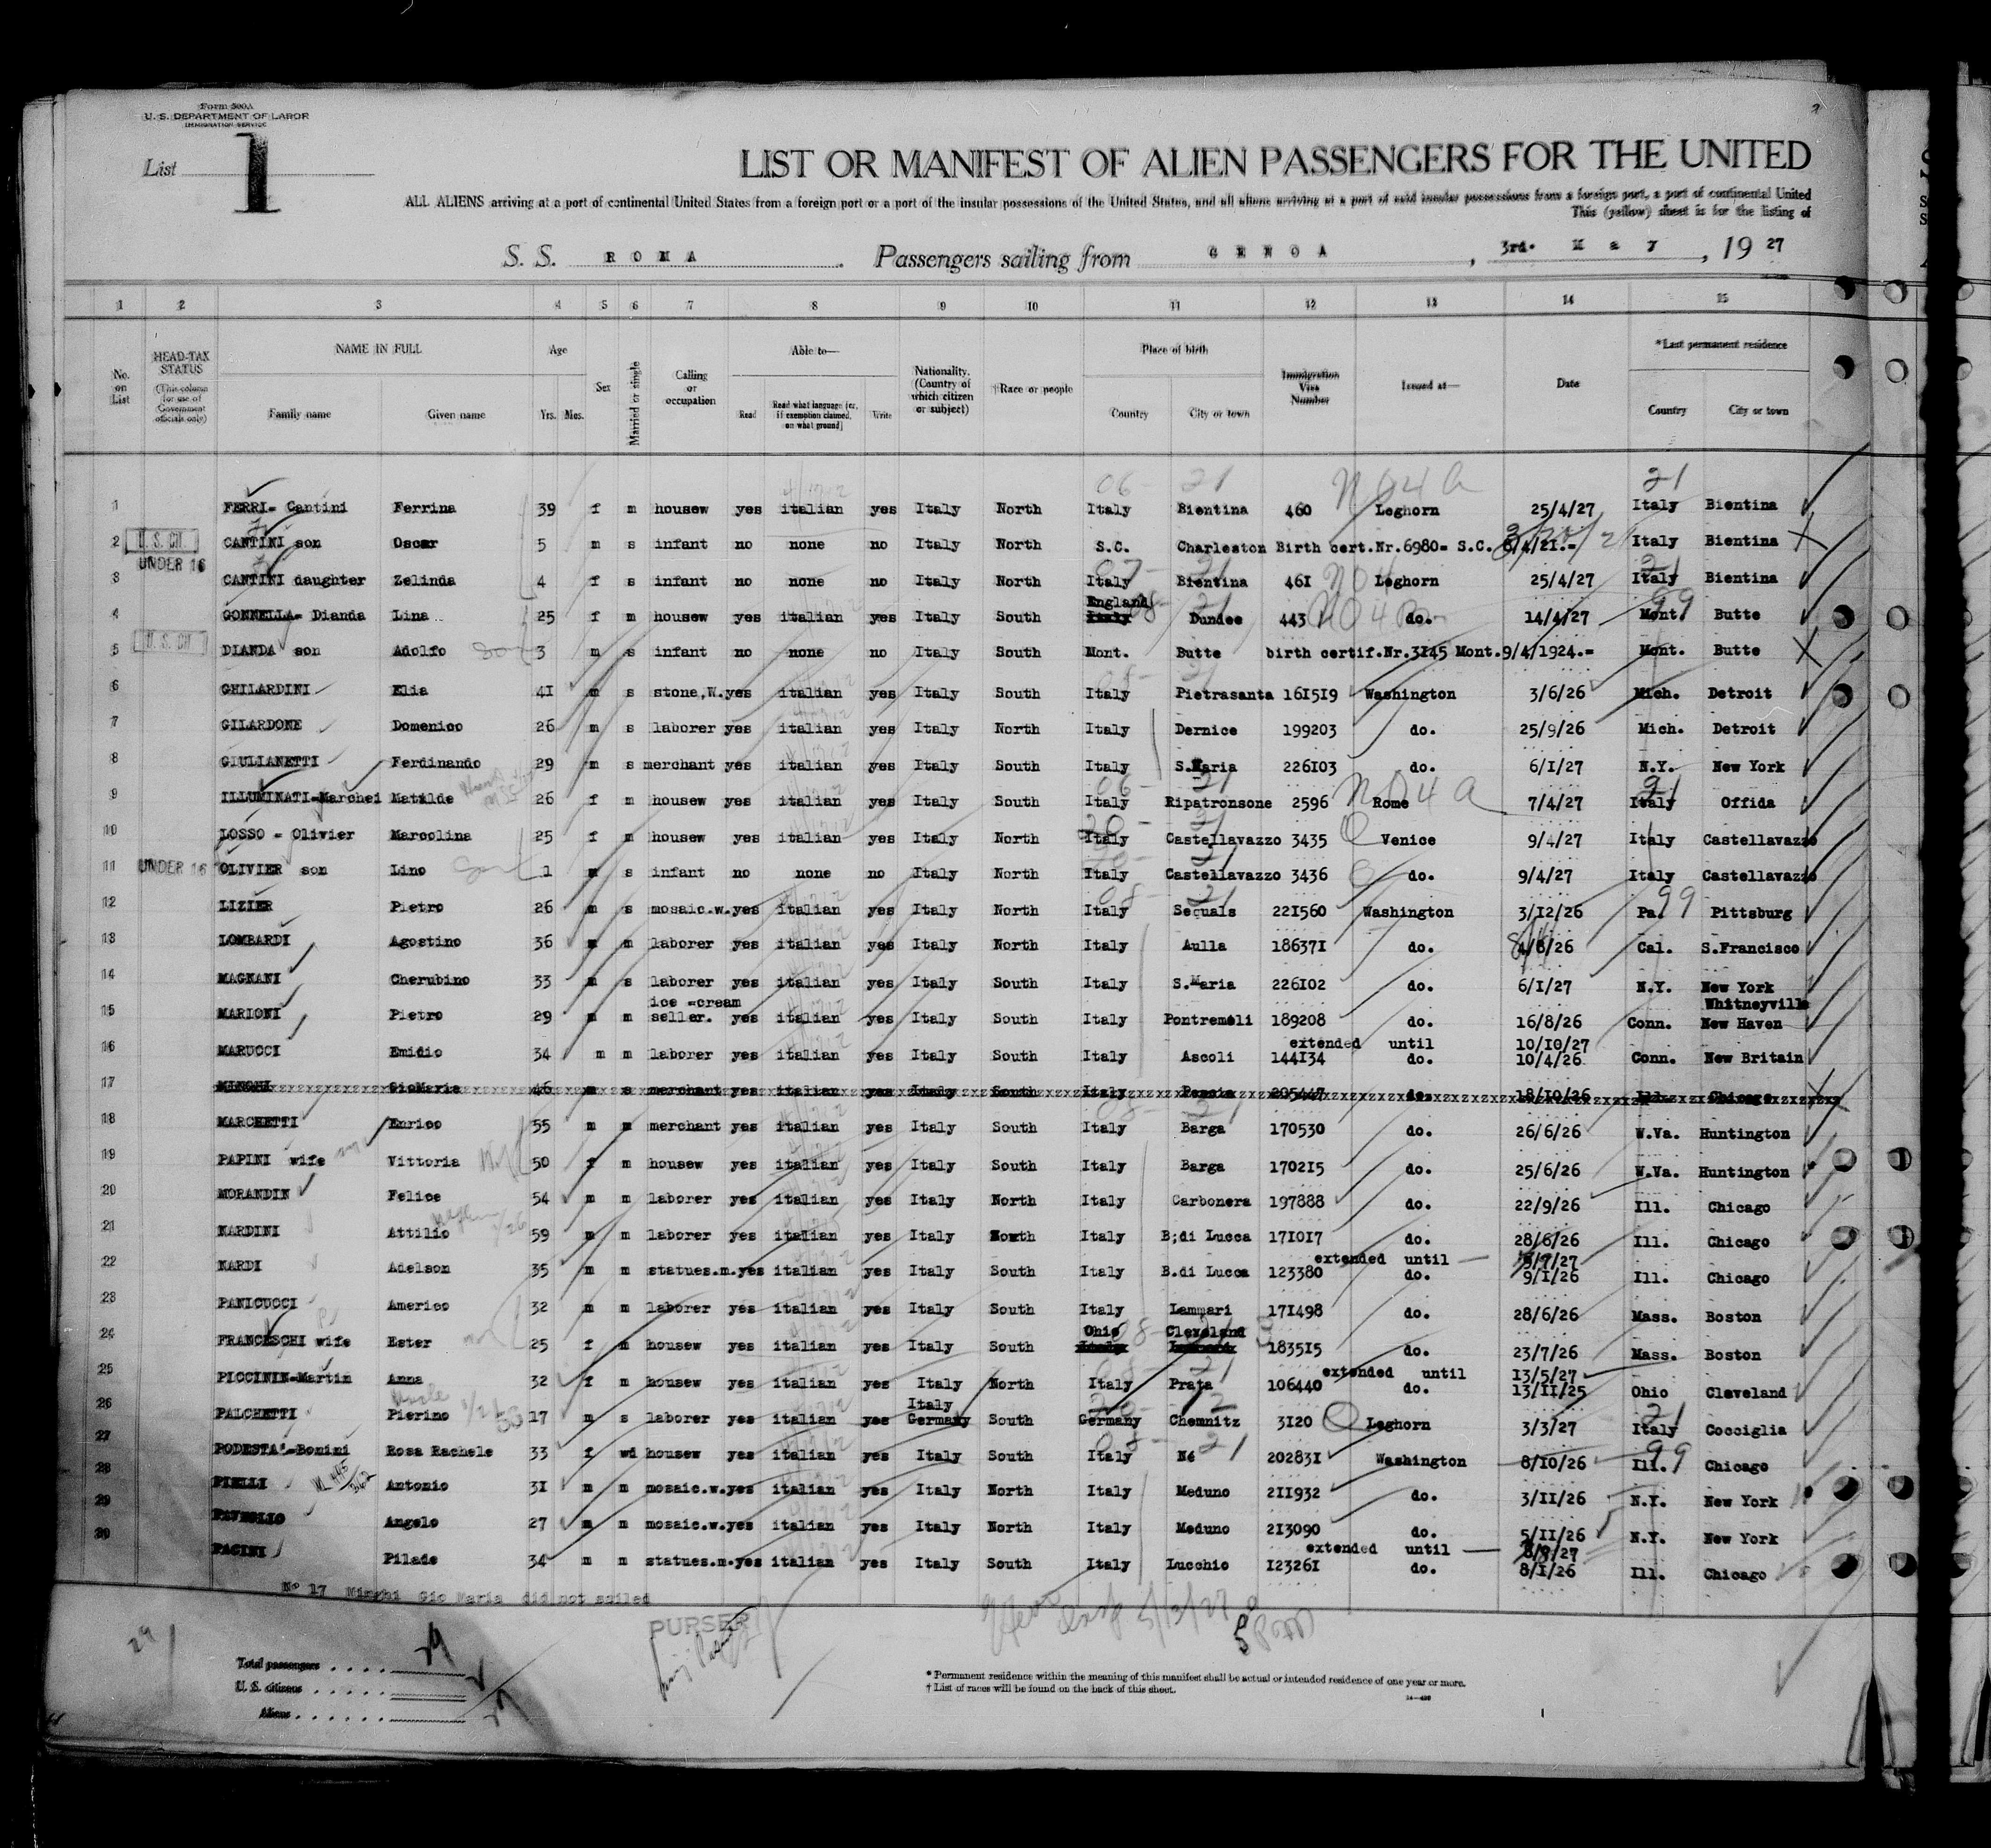 Form 500A
U. S. DEPARTMENT OF LABOR
IMMIGRATION SERVICE
List 1
LIST OR MANIFEST OF ALIEN PASSENGERS FOR THE UNITED
ALL ALIENS arriving at a port of continental United States from a foreign port or a port of the insular possessions of the United States, and all aliens arriving at a port of said insular possessions from a foreign port, a port of continental United
This (yellow) sheet is for the listing of
S. S. ROMA Passengers sailing from GENOA, 3rd. May, 19 27
1 2 3 4 5 6 7 8 9 10 11 12 13 14 15
No. on List
HEAD-TAX STATUS (This column for use of Government officials only)
NAME IN FULL Family name Given name
Age Yrs. Mos.
Sex
Married or single
Calling or occupation
Able to— Read Read what language [or, if exemption claimed, on what ground] Write
Nationality. (Country of which citizen or subject)
†Race or people
Place of birth Country City or town
Immigration Visa Number
Issued at—
Date
*Last permanent residence Country City or town
1 FERRI- Cantini Ferrina 39 f m housew yes italian yes Italy North Italy Bientina 460 Leghorn 25/4/27 Italy Bientina
2 U.S. CIT. CANTINI son Oscar 5 m s infant no none no Italy North S.C. Charleston Birth cert.Nr.6980- S.C. 8/4/21.- Italy Bientina
UNDER 16
3 CANTINI daughter Zelinda 4 f s infant no none no Italy North Italy Bientina 461 Leghorn 25/4/27 Italy Bientina
England
4 GONNELLA- Dianda Lina 25 f m housew yes italian yes Italy South Italy Dundee 443 do. 14/4/27 Mont. Butte
5 U.S. CIT DIANDA son Adolfo son 3 m s infant no none no Italy South Mont. Butte birth certif.Nr.3145 Mont.9/4/1924.- Mont. Butte
6 GHILARDINI Elia 41 m s stone,W.yes italian yes Italy South Italy Pietrasanta 161519 Washington 3/6/26 Mich. Detroit
7 GILARDONE Domenico 26 m s laborer yes italian yes Italy North Italy Dernice 199203 do. 25/9/26 Mich. Detroit
8 GIULIANETTI Ferdinando 29 m s merchant yes italian yes Italy South Italy S.Maria 226103 do. 6/1/27 N.Y. New York
9 ILLUMINATI-Marchei Matilde 26 f m housew yes italian yes Italy South Italy Ripatronsone 2596 Rome 7/4/27 Italy Offida
10 LOSSO - Olivier Marcolina 25 f m housew yes italian yes Italy North Italy Castellavazzo 3435 Venice 9/4/27 Italy Castellavazzo
11 UNDER 16 OLIVIER son Lino son 1 m s infant no none no Italy North Italy Castellavazzo 3436 do. 9/4/27 Italy Castellavazzo
12 LIZIER Pietro 26 m s mosaic.w.yes italian yes Italy North Italy Sequals 221560 Washington 3/12/26 Pa. Pittsburg
13 LOMBARDI Agostino 36 m m laborer yes italian yes Italy North Italy Aulla 186371 do. 4/8/26 Cal. S.Francisco
14 MAGNANI Cherubino 33 m s laborer yes italian yes Italy South Italy S.Maria 226102 do. 6/1/27 N.Y. New York
ice -cream Whitneyville
15 MARIONI Pietro 29 m m seller. yes italian yes Italy South Italy Pontremoli 189208 do. 16/8/26 Conn. New Haven
extended until 10/10/27
16 MARUCCI Emidio 34 m m laborer yes italian yes Italy South Italy Ascoli 144134 do. 10/4/26 Conn. New Britain
17 MINGHI GioMaria 46 m s merchant yes italian yes Italy South Italy Pescia 205447 do. 18/10/26 Ill. Chicago
18 MARCHETTI Enrico 55 m m merchant yes italian yes Italy South Italy Barga 170530 do. 26/6/26 W.Va. Huntington
19 PAPINI wife Vittoria 50 f m housew yes italian yes Italy South Italy Barga 170215 do. 25/6/26 W.Va. Huntington
20 MORANDIN Felice 54 m m laborer yes italian yes Italy North Italy Carbonera 197888 do. 22/9/26 Ill. Chicago
21 NARDINI Attilio 59 m m laborer yes italian yes Italy North Italy B;di Lucca 171017 do. 28/6/26 Ill. Chicago
extended until 9/7/27
22 NARDI Adelson 35 m m statues.m.yes italian yes Italy South Italy B.di Lucca 123380 do. 9/1/26 Ill. Chicago
23 PANICUCCI Americo 32 m m laborer yes italian yes Italy South Italy Lammari 171498 do. 28/6/26 Mass. Boston
Ohio Cleveland
24 FRANCESCHI wife Ester 25 f m housew yes italian yes Italy South Italy 183515 do. 23/7/26 Mass. Boston
extended until 13/5/27
25 PICCININ-Martin Anna 32 f m housew yes italian yes Italy North Italy Prata 106440 do. 13/11/25 Ohio Cleveland
Italy
26 PALCHETTI Pierino 17 m s laborer yes italian yes Germany South Germany Chemnitz 3120 Leghorn 3/3/27 Italy Cocciglia
27 PODESTA'-Bonini Rosa Rachele 33 f wd housew yes italian yes Italy South Italy Né 202831 Washington 8/10/26 Ill. Chicago
28 PIELLI Antonio 31 m m mosaic.w.yes italian yes Italy North Italy Meduno 211932 do. 3/11/26 N.Y. New York
29 PAVEGLIO Angelo 27 m m mosaic.w.yes italian yes Italy North Italy Meduno 213090 do. 5/11/26 N.Y. New York
extended until 8/8/27
30 PACINI Pilade 34 m m statues.m.yes italian yes Italy South Italy Lucchio 123261 do. 8/1/26 Ill. Chicago
No 17 Minghi Gio Maria did not sailed
PURSER
Total passengers 29
U. S. citizens 2
Aliens 27
* Permanent residence within the meaning of this manifest shall be actual or intended residence of one year or more.
† List of races will be found on the back of this sheet.